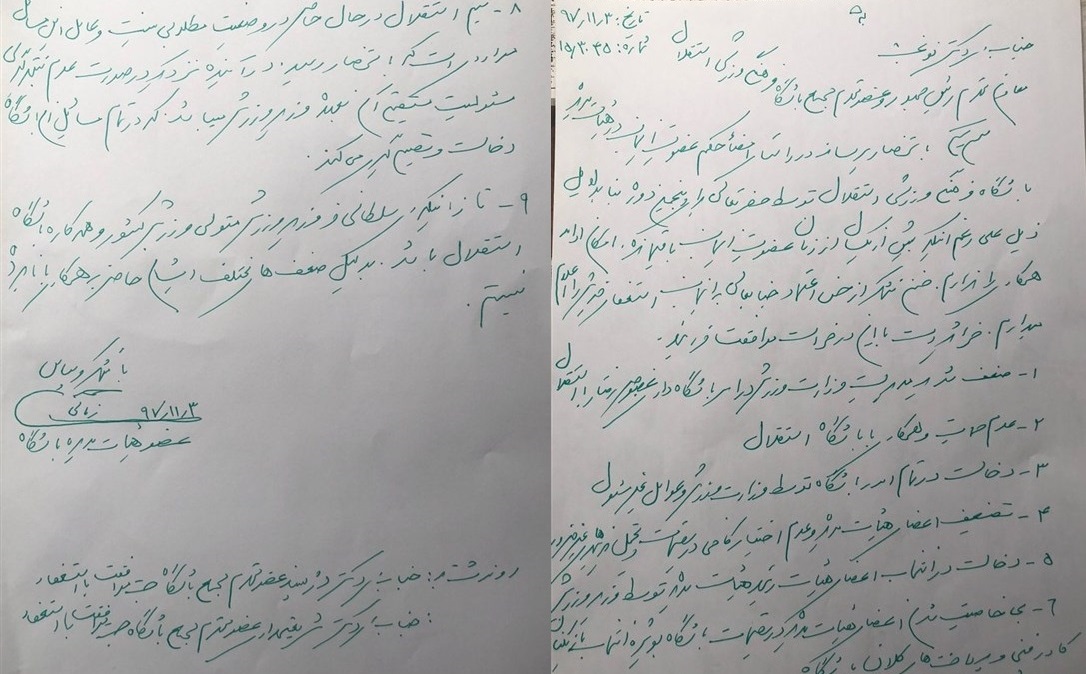 بسمه تعالی
تاریخ: ۹۷/۱۱/۳
شماره: ۱۵/۳۰۴۵
جناب دکتر نوبخت
معاون محترم رئیس جمهور و عضو محترم مجمع باشگاه فرهنگی ورزشی استقلال
سلام علیکم با استحضار می‌رساند در راستای امضاء حکم عضویت اینجانب در هیات مدیره
باشگاه فرهنگی ورزشی استقلال توسط حضرتعالی و بنا به دلایل
ذیل علی رغم اینکه بیش از یکسال از زمان عضویت اینجانب باقیمانده، امکان ادامه
همکاری را ندارم. ضمن تشکر از حسن اعتماد جنابعالی به اینجانب استعفای خویش را اعلام
میدارم. خواهشمند است با این درخواست موافقت فرمایید.
۱- ضعف شدید مدیریت وزارت ورزش در امر باشگاه داری بخصوص رفتار با استقلال
۲- عدم حمایت و همکاری با باشگاه استقلال
۳- دخالت در تمام امور باشگاه توسط وزارت ورزش و عوامل غیر مسئول
۴- تضعیف اعضای هیات مدیره و عدم اختیار کافی در تصمیمات و تحمیل
۵- دخالت در انتخاب اعضای هیات رئیسه هیات مدیره توسط وزیر ورزش
۶- بی خاصیت شدن اعضای هیات مدیره در تصمیمات باشگاه بویژه انتخاب بازیکنان
کادر فنی و پرداخت های کلان باشگاه
۸- تیم استقلال در حال حاضر در وضعیت مطلوبی نیست و عامل این مسائل
مواردی است که به استحضار رسید. در آینده نزدیک در صورت عدم نتیجه گیری
مسئولیت مستقیم آن بعهده وزیر ورزش میباشد که در تمام مسائل این باشگاه
دخالت و تصمیم گیری می‌کند.
۹- تا زمانیکه سلطانی فر وزیر ورزش متولی ورزش کشور و همه کاره باشگاه
استقلال باشد. بدلیل ضعف های مختلف ایشان حاضر به همکاری با نامبرده
نیستم.
با تشکر و سپاس
۹۷/۱۱/۳
عضو هیات مدیره باشگاه
رونوشت: جناب دکتر عضو محترم مجمع باشگاه جهت موافقت با استعفاء
: جناب دکتر شریعتمداری عضو محترم مجمع باشگاه جهت موافقت با استعفاء